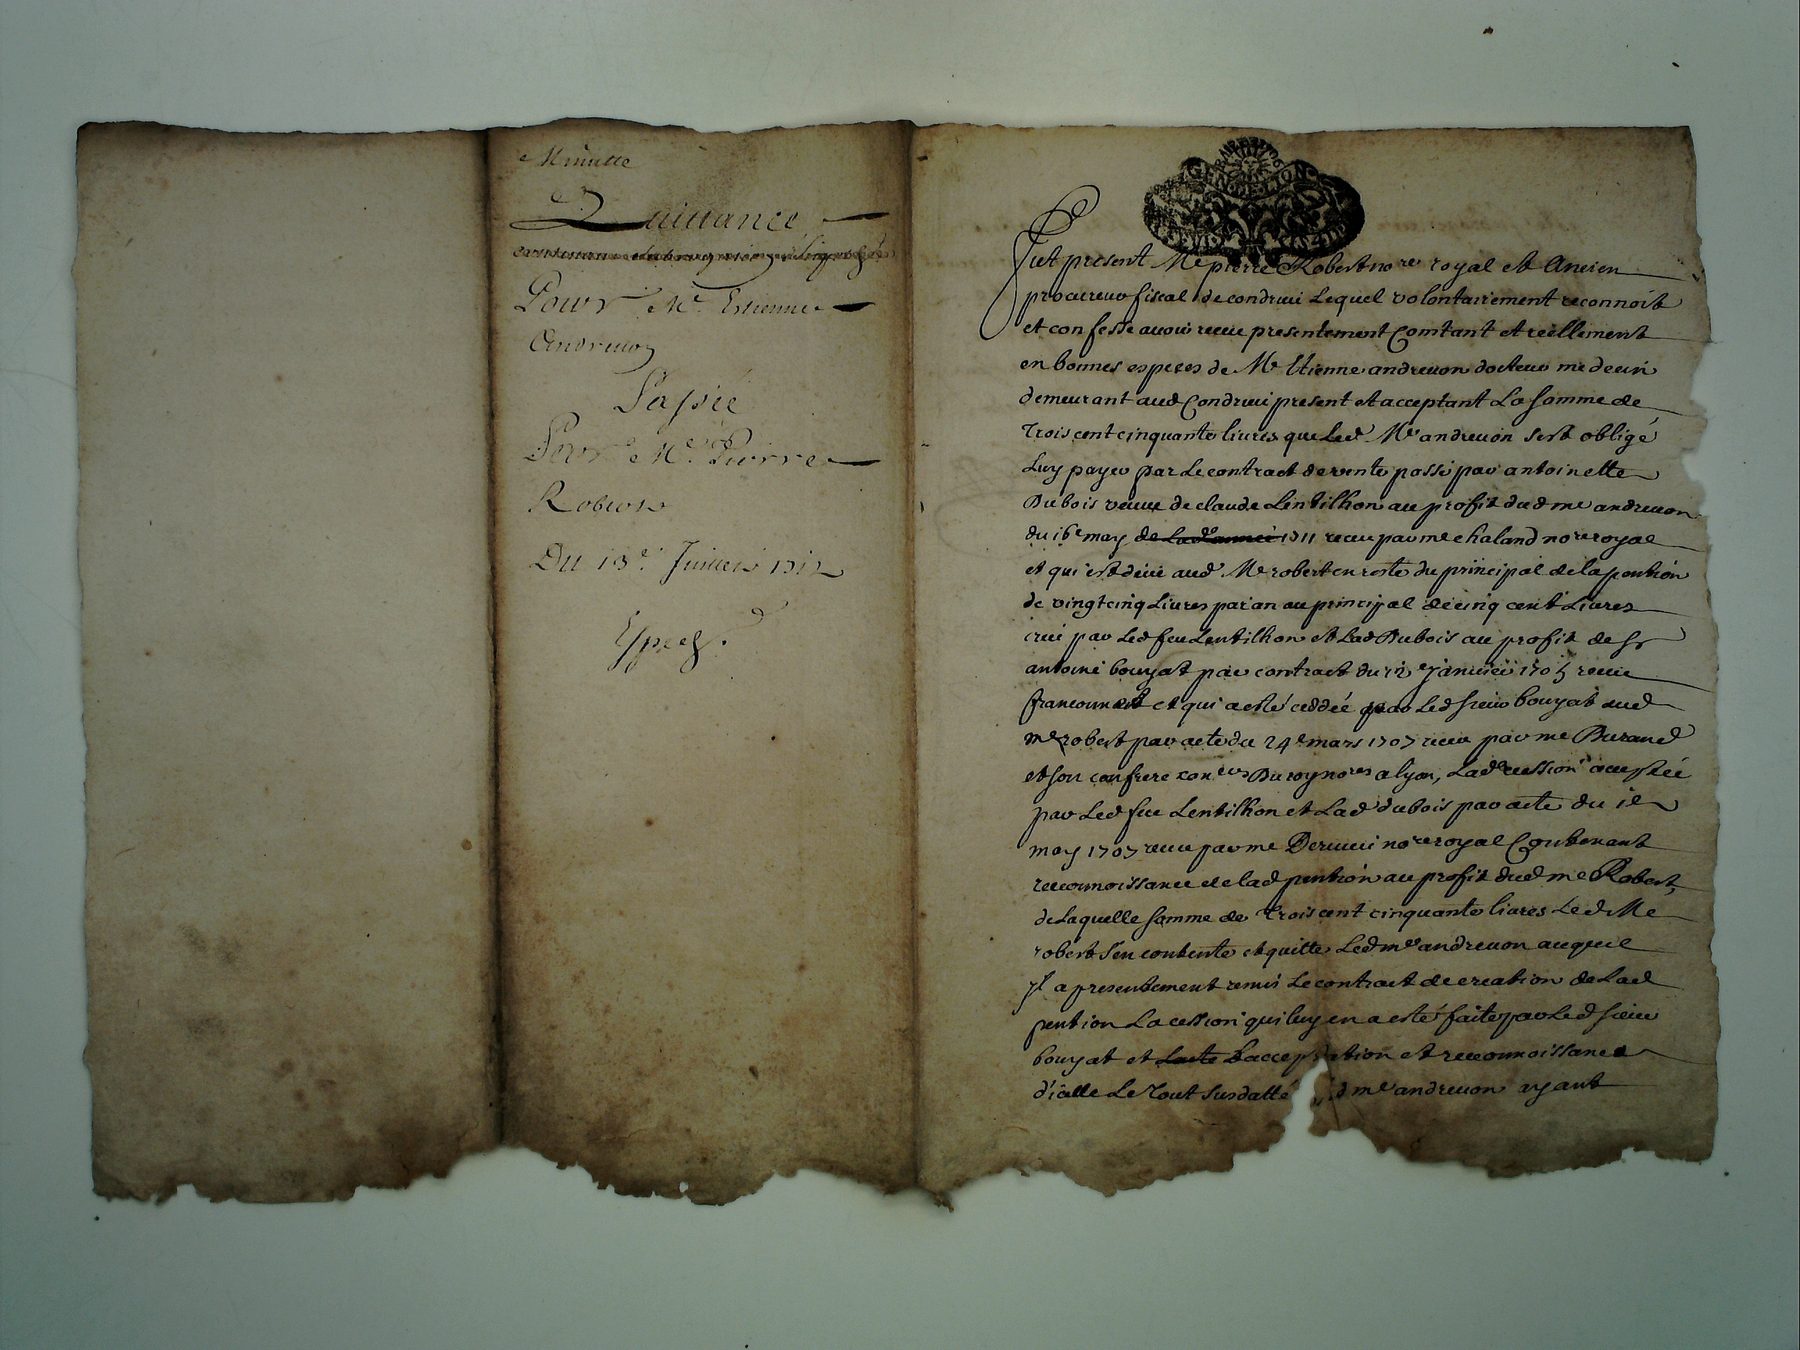 Minutte
Quittance
Pour Me Estienne
Andreuon
Passée
Pour Me Pierre
Robert
Du 13e Juillet 1712
Exped
GEN DE LION
Fut present Me pierre Robert nore royal et Ancien
procureur fiscal de condrieu Lequel volontairement reconnoit
et confesse auoir receu presentement Comtant et reellement
en bonnes especes de Me Etienne andreuon docteur medecin
demeurant aud Condrieu present et acceptant La somme de
Trois cent cinquante liures que Led. Me andreuon s'est obligé
Luy payer par Le contract de vente passé par antoinette
Dubois veuue de claude Lentilhon au profit dud me andreuon
du 16e may de Lad année 1711 receu par me chaland nore royal
et qui est deüe aud Me robert en reste du principal de la pention
de vingt cinq Liures par an au principal de cinq cent Liures
creé par Led feu Lentilhon et Lad Dubois au profit de sr
antoine bouyat par contract du 12e januier 1705 receu
et qui a esté ceddée par Led sieur bouyat aud
me robert par acte du 24e mars 1707 receu par me Durand
et son confrere coners Du roy nores a lyon, Lad cession acceptée
par Led feu Lentilhon et Lad dubois par acte du
may 1707 receu par me Derieu nore royal Contenant
reconnoissance de lad pention au profit dud me Robert,
de Laquelle somme de Trois cent cinquante liures Led Me
robert s'en contente et quitte Led me andreuon auquel
jl a presentement remis Le contract de creation de Lad
pention La cession qui luy en a esté faite par Led sieur
bouyat et Lacte Lacceptation et reconnoissance
d'icelle Le Tout susdatté d me andreuon ayant